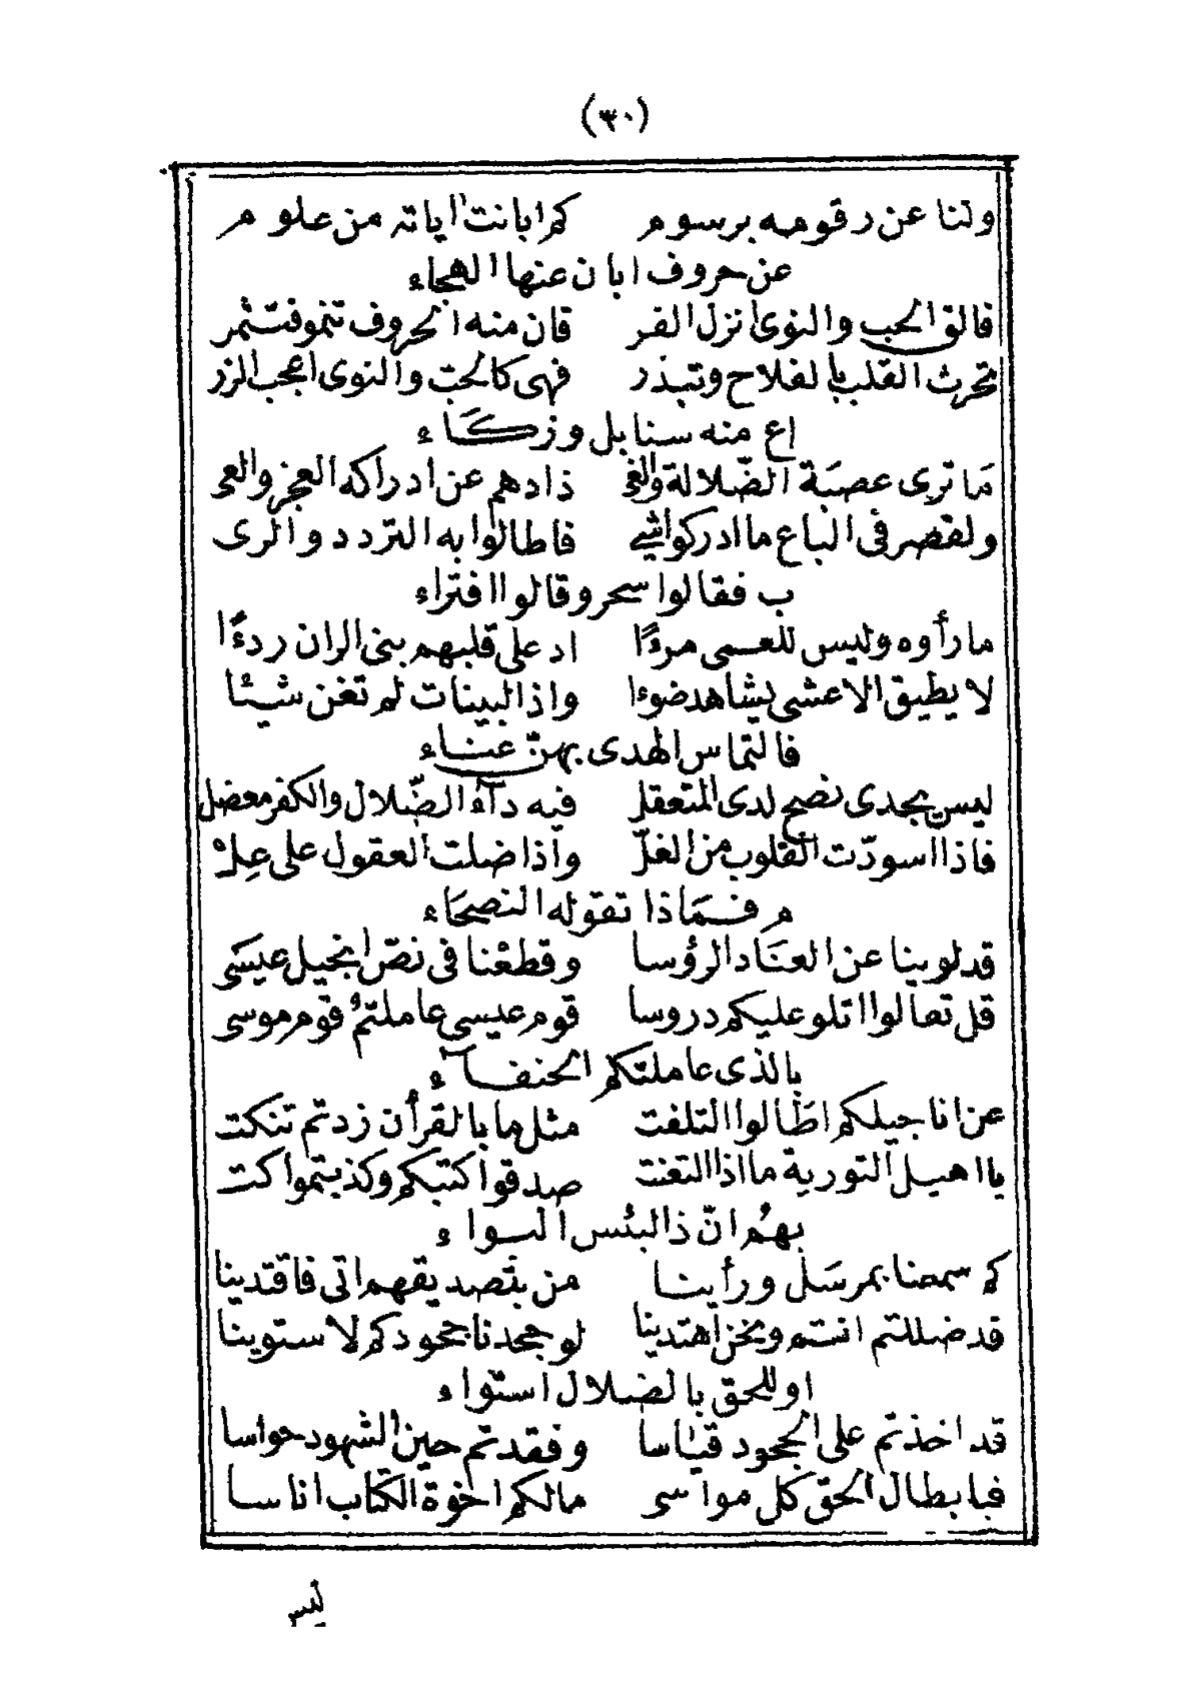 (٣٠)
ولنا عن رقومه برسوم كم ابانت اياته من علوم
عن حروف ابان عنها الهجاء
فالق الحب والنوى انزل الفر قان منه الحروف تنمو فتثمر
تحرث القلب بالفلاح وتبذر فهى كالحب والنوى اعجب الزر
اع منه سنابل وزكاء
مَا ترى عصبَة الضّلالة والغى ذادهم عن ادراكه العجز والعى
ولقصر فى الباع ما ادركوا شيئ فاطالوا به التردد والرى
ب فقالوا سحر وقالوا افتراء
ما رأوه وليس للعمى مرءًا اد على قلبهم بنى الران ردءًا
لا يطيق الاعشى يشاهد ضوءا واذا البينات لم تغن شيئا
فالتماس الهدى بهنّ عناء
ليس يجدى نصح لدى المتعقل فيه دآء الضّلال والكفر معضل
فاذا اسودّت القلوب من الغلّ واذا ضلت العقول على عِلْ
م فمَاذا تقوله النصحَاء
قد لوينا عن العنَاد الرؤسا وقطعْنا فى نصّ انجيل عيسَى
قل تعالوا اتلو عليكم دروسا قوم عيسى عاملتمُ قوم موسى
بالذى عاملتكم الحنفآء
عن اناجيلكم اطَالوا التلفت مثل ما بالقرأن زدتم تنكت
يا اهيل التورية ما اذا التعنت صدقوا كتبكم وكذبتموا كت
بهُم انّ ذا لبئس البواء
كم سمعنا بمرسَل ورأينا من بتصديقهم اتى فاقتدينا
قد ضللتم انتم ونحن اهتدينا لو جحدنا جحودكم لاستوينا
او للحق بالضلال استواء
قد اخذتم على الجحود قياسا وفقدتم حين الشهود حواسا
فبابطال الحق كل مواسى مالكم اخوة الكتاب اناسا
ليس